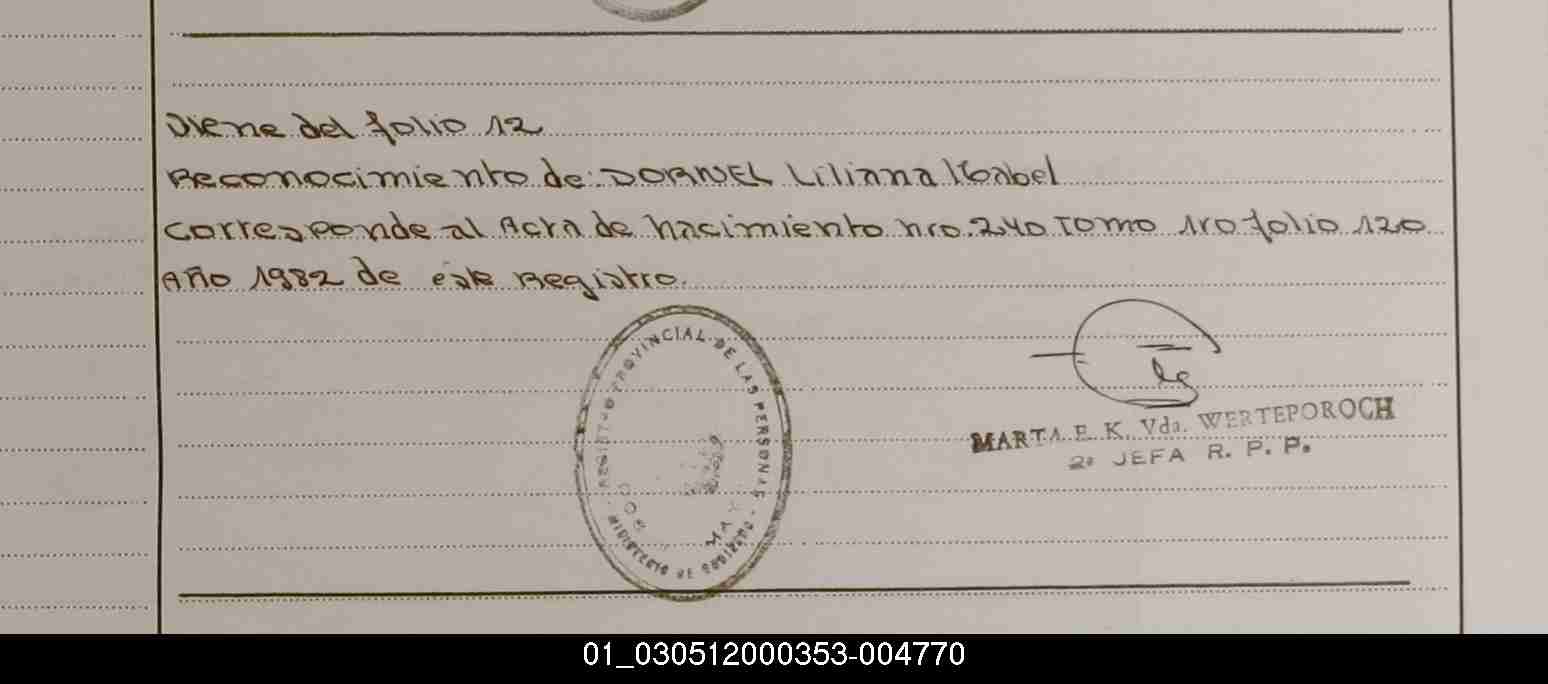 Viene del folio 12
Reconocimiento de: DORNEL Liliana Isabel
Corresponde al Acta de nacimiento nro. 240 Tomo 1ro folio 120
Año 1982 de este Registro.
REGISTRO PROVINCIAL DE LAS PERSONAS
MINISTERIO DE GOBIERNO
MARTA E. K. Vda. WERTEPOROCH
2a JEFA R. P. P.
01_030512000353-004770